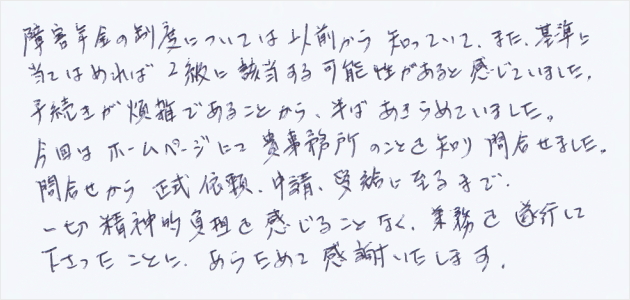 障害年金の制度については以前から知っていて、また、基準に
当てはめれば2級に該当する可能性があると感じていました。
手続きが煩雑であることから、半ばあきらめていました。
今回はホームページにて貴事務所のことを知り問合せました。
問合せから正式依頼、申請、受給に至るまで、
一切精神的負担を感じることなく、業務を遂行して
下さったことに、あらためて感謝いたします。